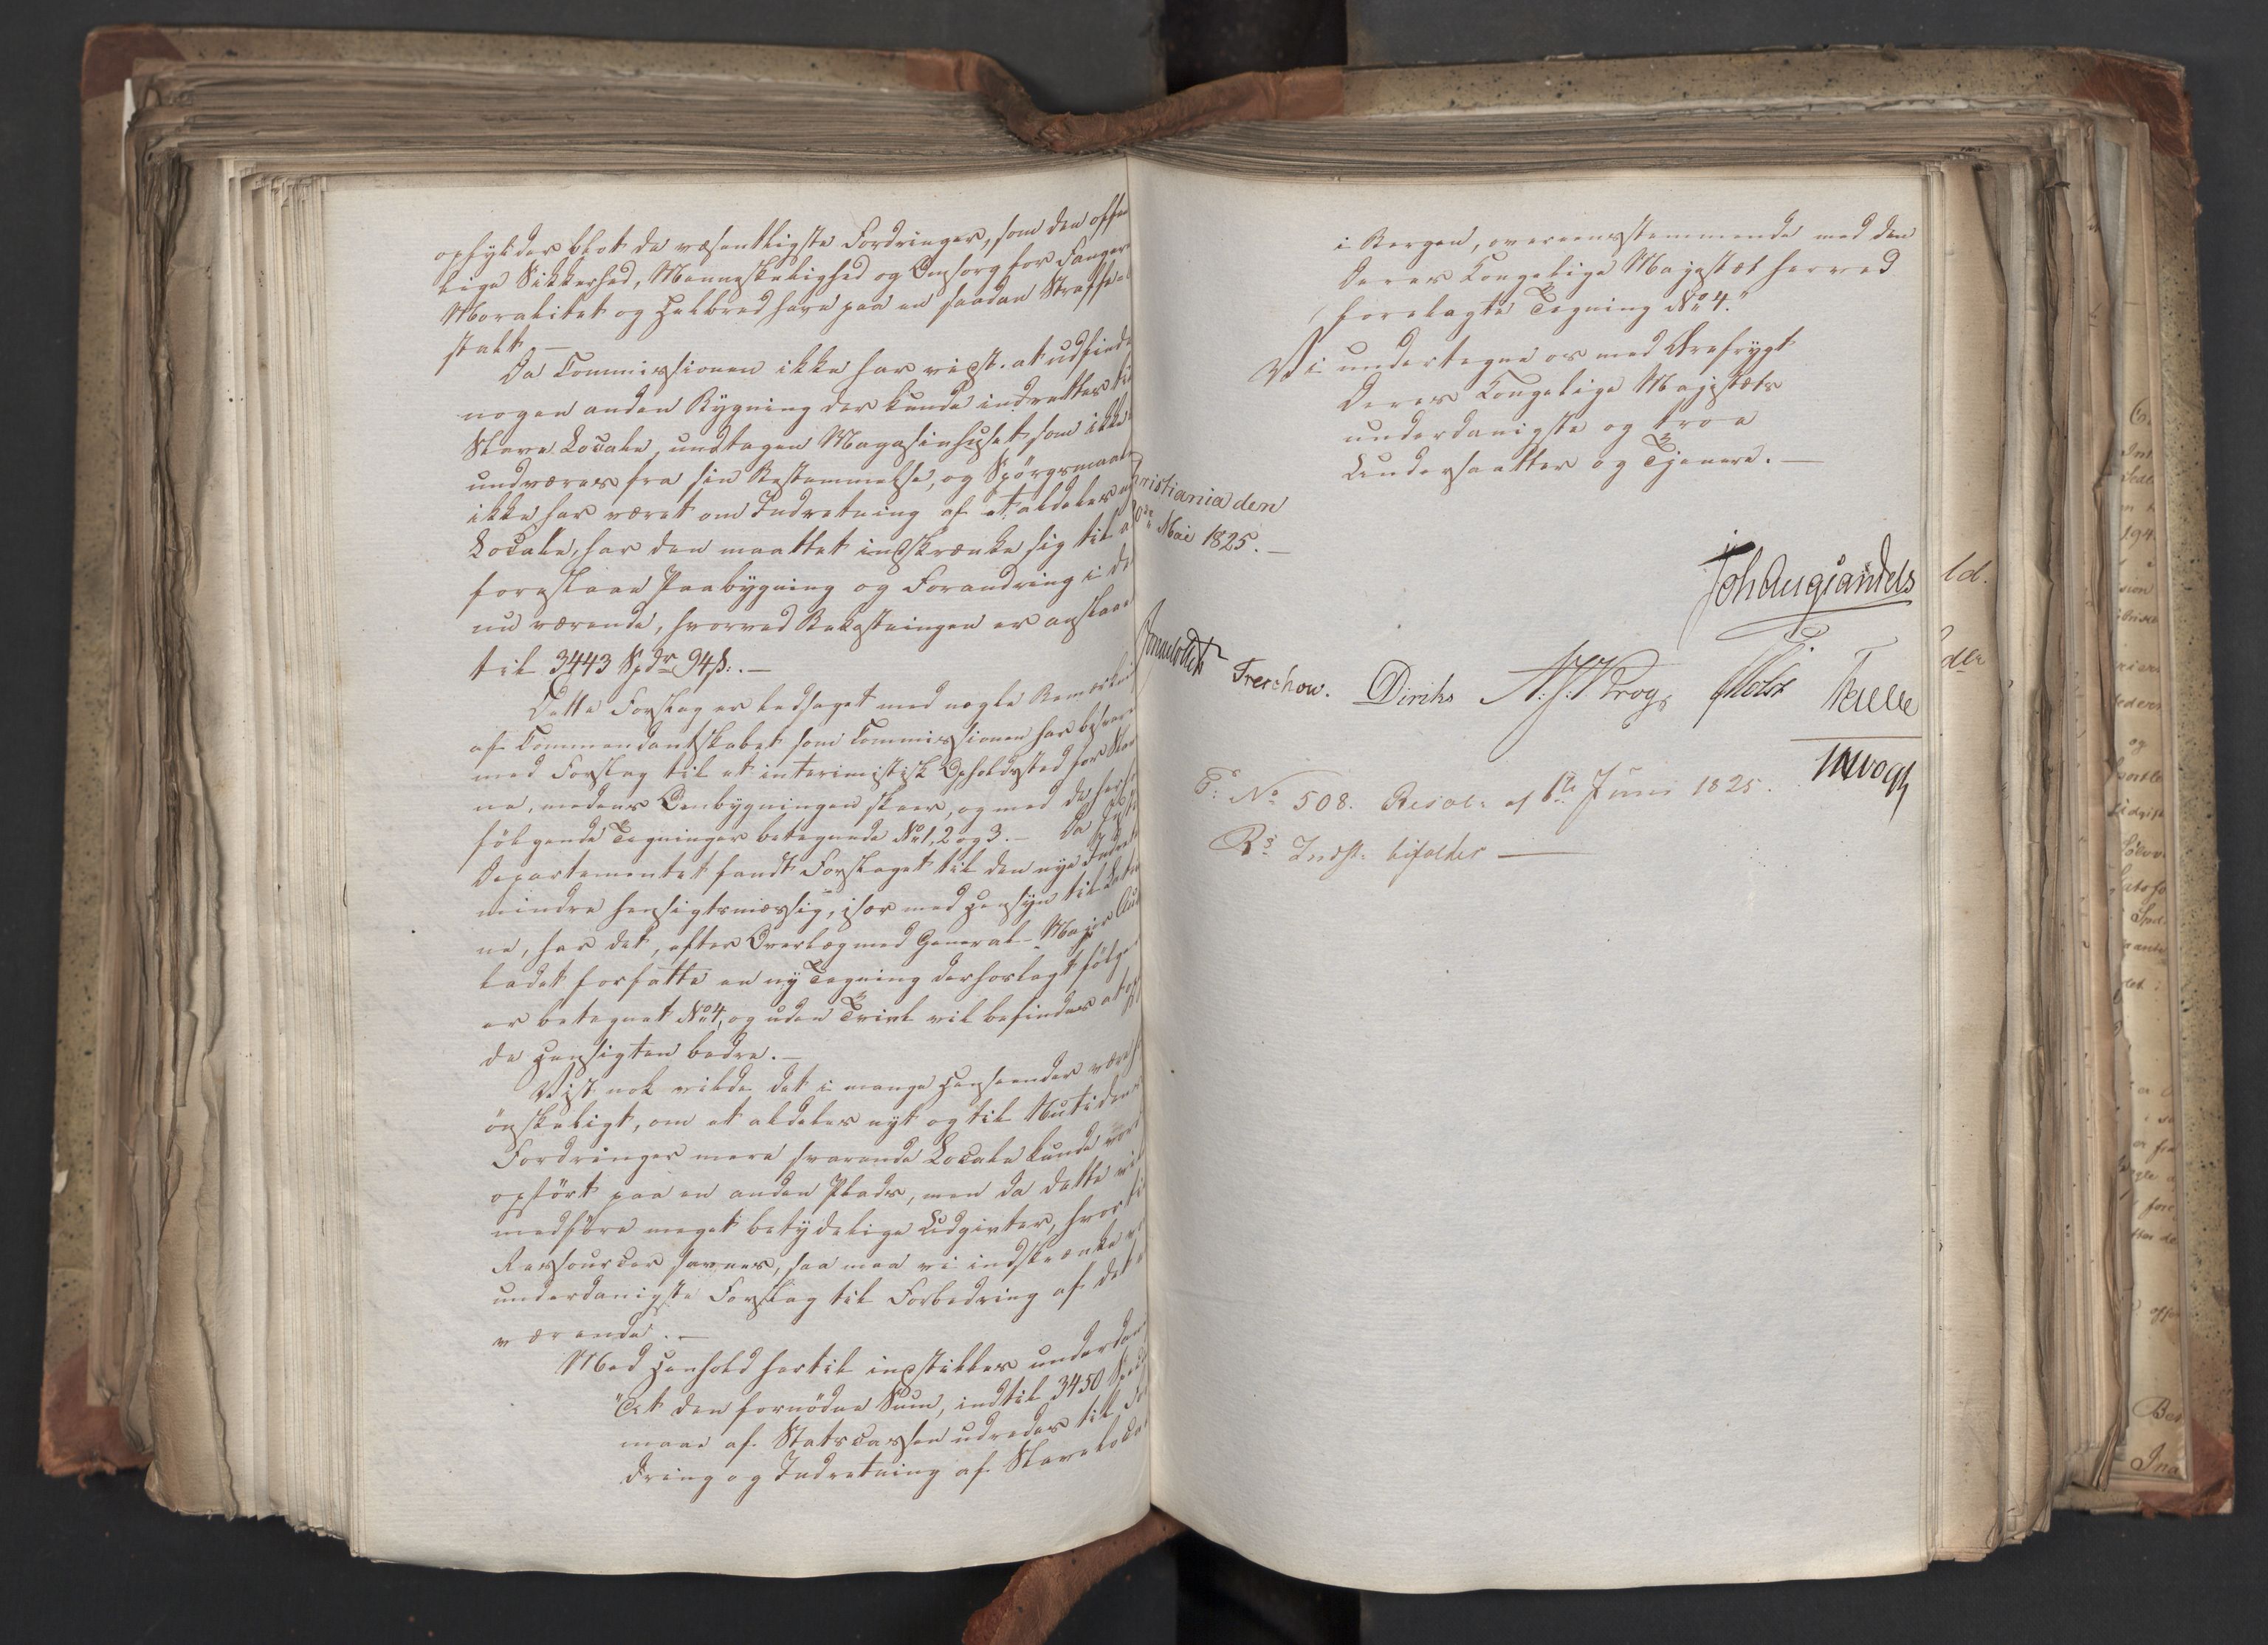 opfylder blot de væsentligste Fordringer, som den offen
lige Sikkerhed, Menneskelighed og Omsorg for Fanger
Moralitet og Helbred have paa en saadan Straffe
stalt. —
Da Commissionen ikke har vidst at udfinde
nogen anden Bygning der kunde indrettes til
Slave Locale, undtagen Magasinhuset, som ikke
undværes fra sin Bestemmelse, og Spörgsmaale
ikke har været om Indretning af et aldeles
Locale, har den maattet indskrænke sig til
foreslaae Paabygning og Forandring i de
nu værende, hvorved Bekostningen er anslaae
til 3443 Spdr 94 ß. —
Dette Forslag er ledsaget med nogle Bemærkni
af Commendantskabet som Commissionen har besvare
med Forslag til et interimistisk Opholdssted for Slav
ne, medens Ombygningen skeer, og med de her
følgende Tegninger betegnede No 1, 2 og 3. — Da Justi
Departementet fandt Forslaget til den nye Indret
mindre hensigtsmæssig, især med Hensyn til Latri
ne, har det, efter Overlæg med General-Major Au
ladet forfatte en ny Tegning der hoslagt følge
er betegnet No 4, og uden Tvivl vil befindes at op
de Hensigten bedre. —
Vist nok vilde det i mange Henseender være
önskeligt, om et aldeles nyt og til Nutidens
Fordringer mere svarende Locale kunde vor
opført paa en anden Plads, men da dette vil
medføre meget betydelige Udgivter, hvor til
Ressourcer savnes, saa maa vi indskrænke
underdanigste Forslag til Forbedring af det
værende. —
Med Henhold hertil indstilles underdan
"At den fornødne Sum, indtil 3450 Spd
maae af Statscassen udredes till For
dring og Indretning af Slavelocal
i Bergen, overeensstemmende med den
Deres Kongelige Majestæt herved
forelagte Tegning No 4."
Vi undertegne os med Ærefrygt
Deres Kongelige Majestæts
underdanigste og troe
Undersaatter og Tjenere. —
hristiania den
de Mai 1825. —
Joh Aug Sandels
Sommerhielm Treschow. Diriks A. J. Krog Motzfeldt
Vogt
F: No 508. Resol: af 6te Juni 1825.
Rs Indst: bifaldes —